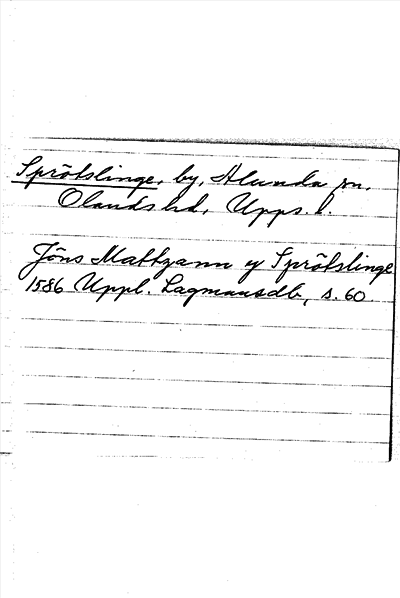 Sprötslinge, by, Alunda sn.
Olands hd, Upps. l.
Jöns Mattzann y Sprötslinge
1586 Uppl. Lagmansdb, s. 60